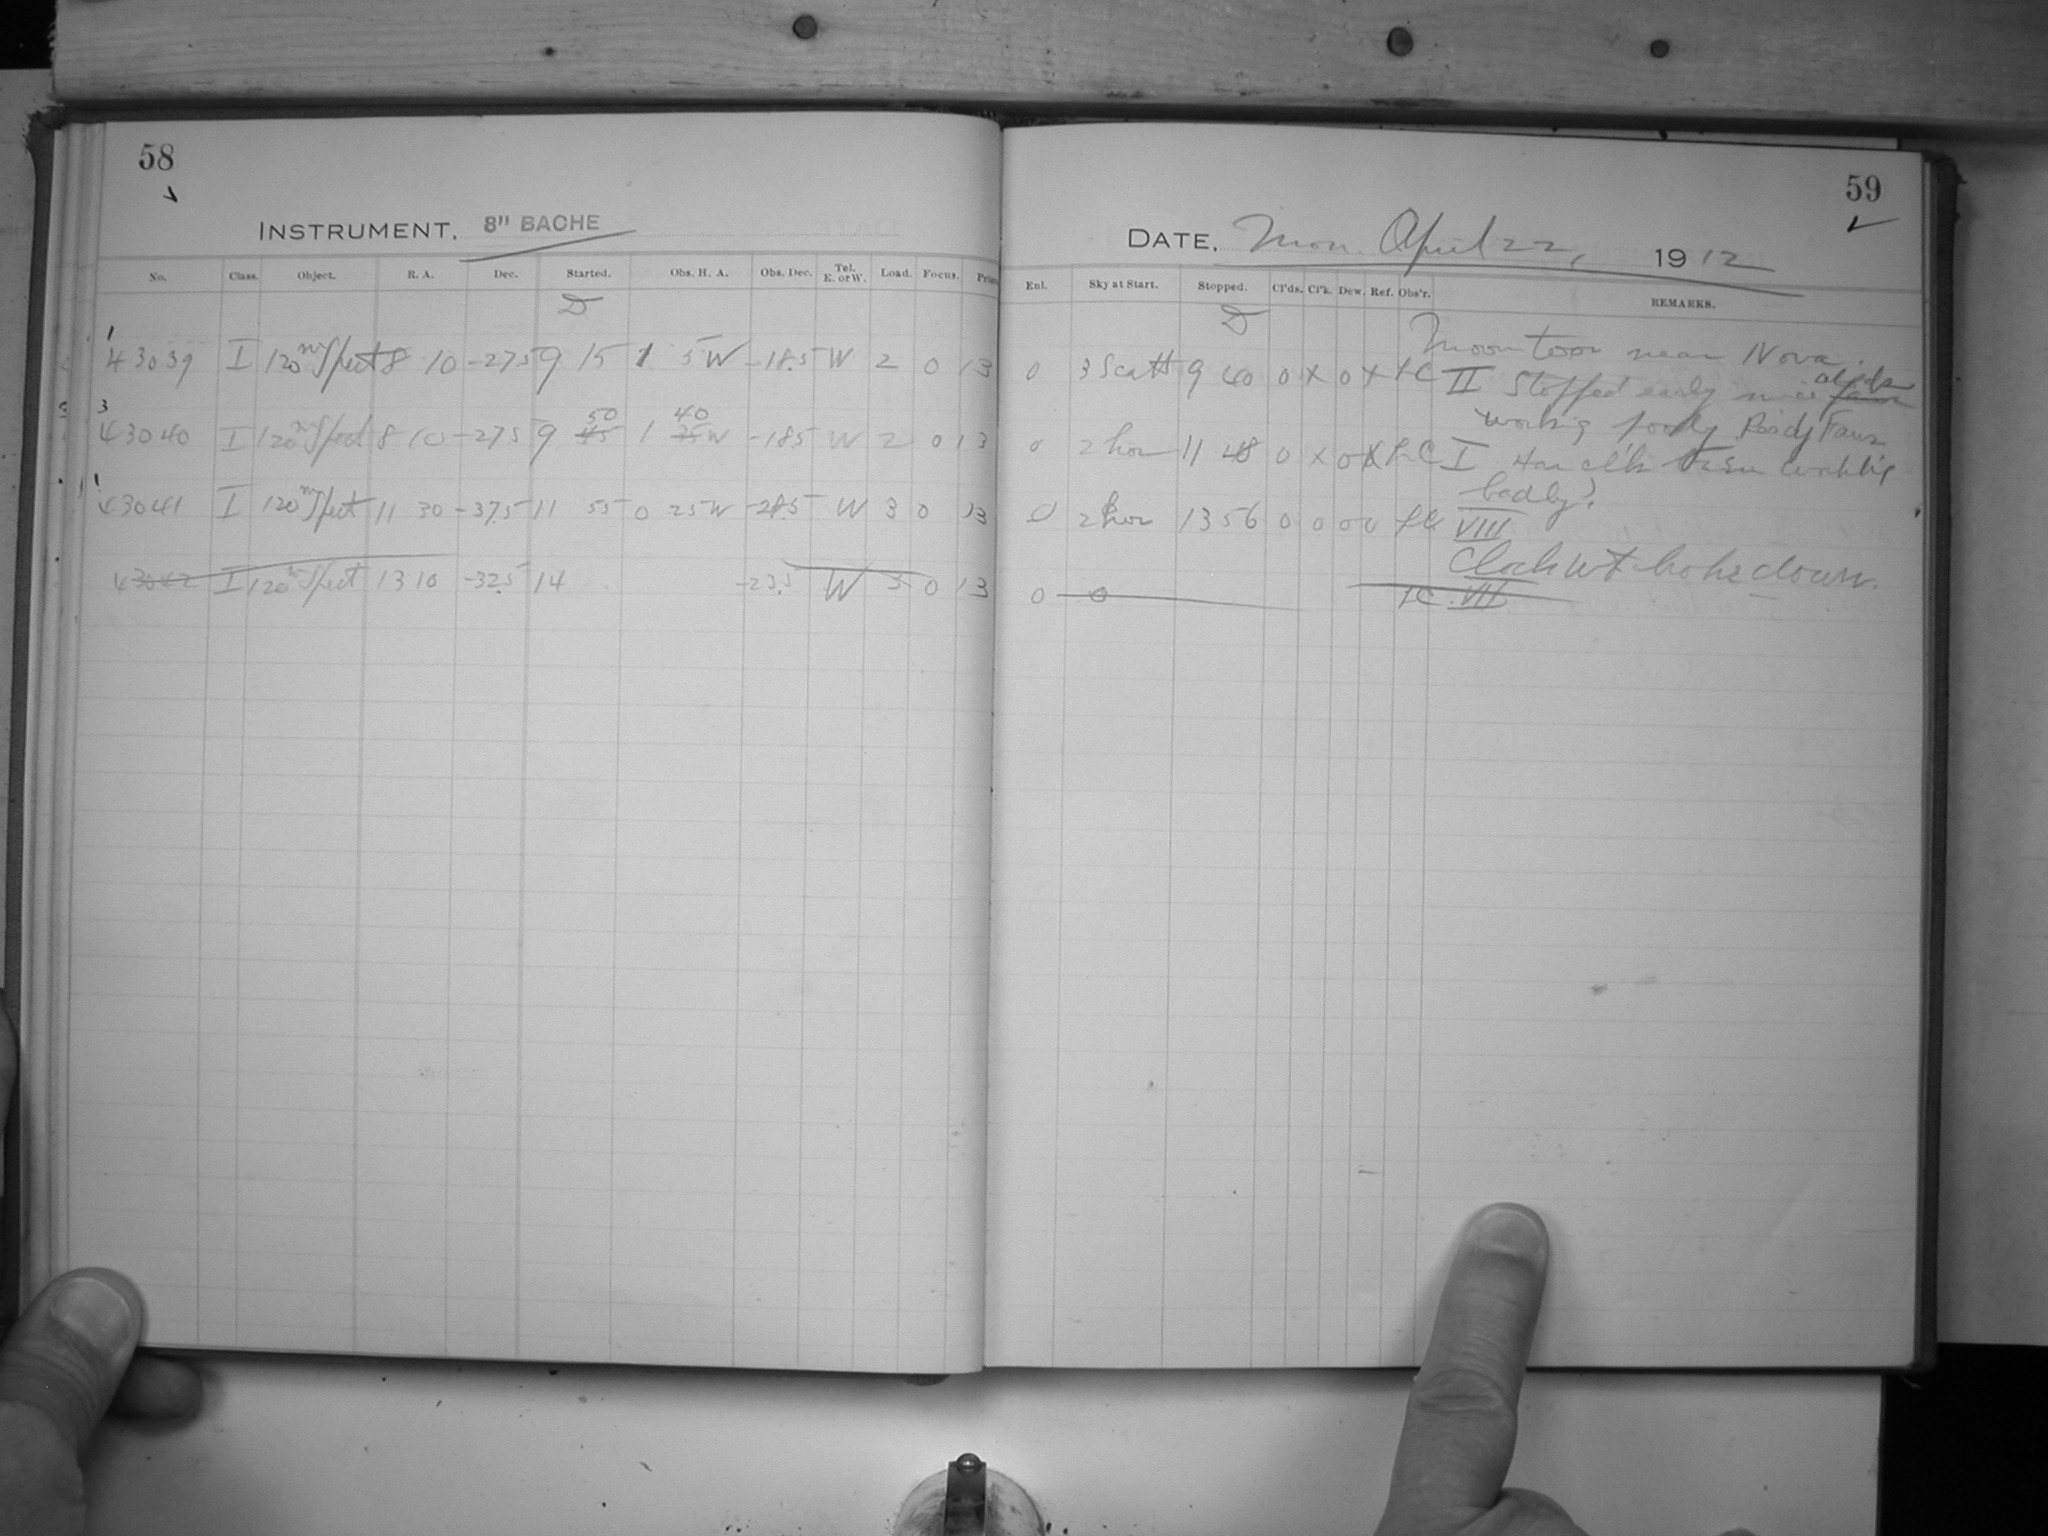 58
INSTRUMENT, 8" BACHE
No. Class. Object. R. A. Dec. Started. Obs. H. A. Obs. Dec. Tel. E. or W. Load. Focus. Prism
D
1
43039 I 120m Spect 8 10 -27.5 9 15 1 5 W -18.5 W 2 0 13
3 50 40
43040 I 120m Spect 8 10 -27.5 9 45 1 25 W -18.5 W 2 0 13
1
43041 I 120m Spect 11 30 -37.5 11 55 0 25 W -28.5 W 3 0 13
43042 I 120m Spect 13 10 -32.5 14 -23.5 W 3 0 13
59
DATE, Mon. April 22, 1912
Enl. Sky at Start. Stopped. Cl'ds. Cl'k. Dew. Ref. Obs'r. REMARKS.
D
Moon too near Nova.
0 3 Scatt 9 40 0 x 0 x LC II Stopped early since
working poorly
0 2 hor 11 48 0 x 0 x LC I Has cl'k been working
badly?
0 2 hor 13 56 0 0 0 0 LC VIII
Clock wt broke down.
0 0 LC VII